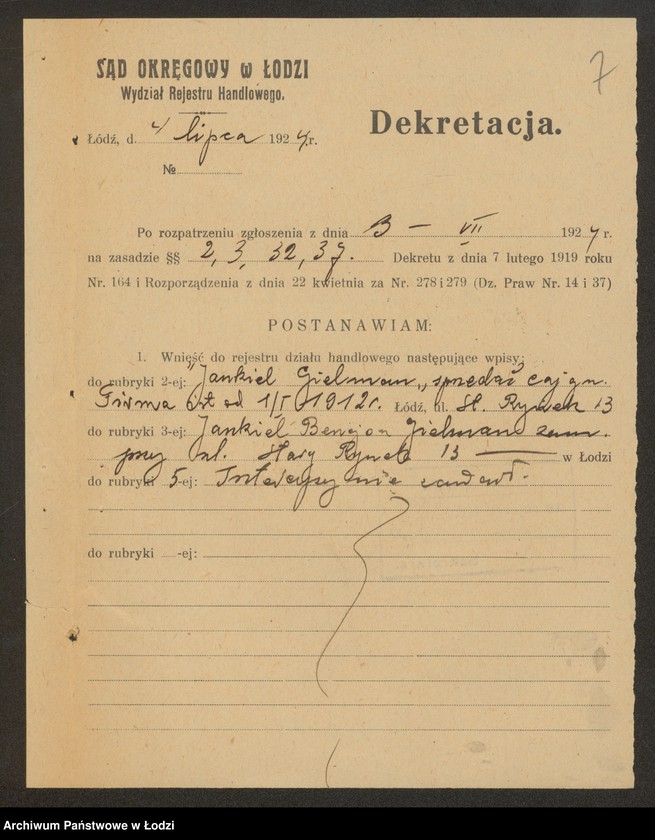 7
SĄD OKRĘGOWY w ŁODZI
Wydział Rejestru Handlowego.
Dekretacja.
Łódź, d. 4 lipca 1924 r.
№
Po rozpatrzeniu zgłoszenia z dnia 3 — VII 1924 r.
na zasadzie §§ 2, 3, 32, 37. Dekretu z dnia 7 lutego 1919 roku
Nr. 164 i Rozporządzenia z dnia 22 kwietnia za Nr. 278 i 279 (Dz. Praw Nr. 14 i 37)
POSTANAWIAM:
1. Wnieść do rejestru działu handlowego następujące wpisy:
do rubryki 2-ej: "Jankiel Gielman" sprzedaż
Firma ist od 1/I 1912 r. Łódź, ul. St. Rynek 13
do rubryki 3-ej: Jankiel Bencjon Gielman zam.
przy ul. Stary Rynek 13 — w Łodzi
do rubryki 5-ej: Intercyzy nie zawarł.
do rubryki -ej:
Archiwum Państwowe w Łodzi